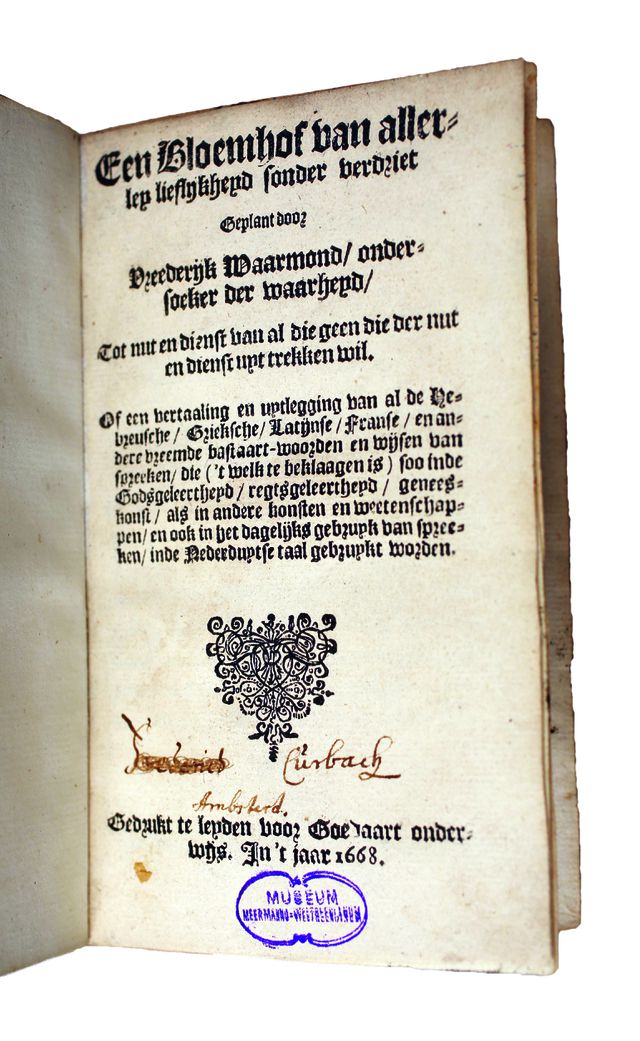 Een Bloemhof van aller-
ley lieflykheyd sonder verdriet
Geplant door
Vreederijk Waarmond/ onder-
soeker der waarheyd/
Tot nut en dienst van al die geen die der nut
en dienst uyt trekken wil.
Of een vertaaling en uytlegging van al de He-
breusche / Grieksche/ Latijnse / Franse / en an-
dere vreemde bastaart-woorden en wijsen van
spreeken/ die ('t welk te beklaagen is) soo inde
Godsgeleertheyd / regtsgeleertheyd / genees-
konst / als in andere konsten en weetenschap-
pen/ en ook in het dagelijks gebruyk van spree-
ken/ inde Nederduytse taal gebruykt worden.
Cürbach
Ambsterd.
Gedrukt te leyden voor Goedaart onder-
wijs. In 't jaar 1668.
MUSEUM
MEERMANNO-WESTREENIANUM